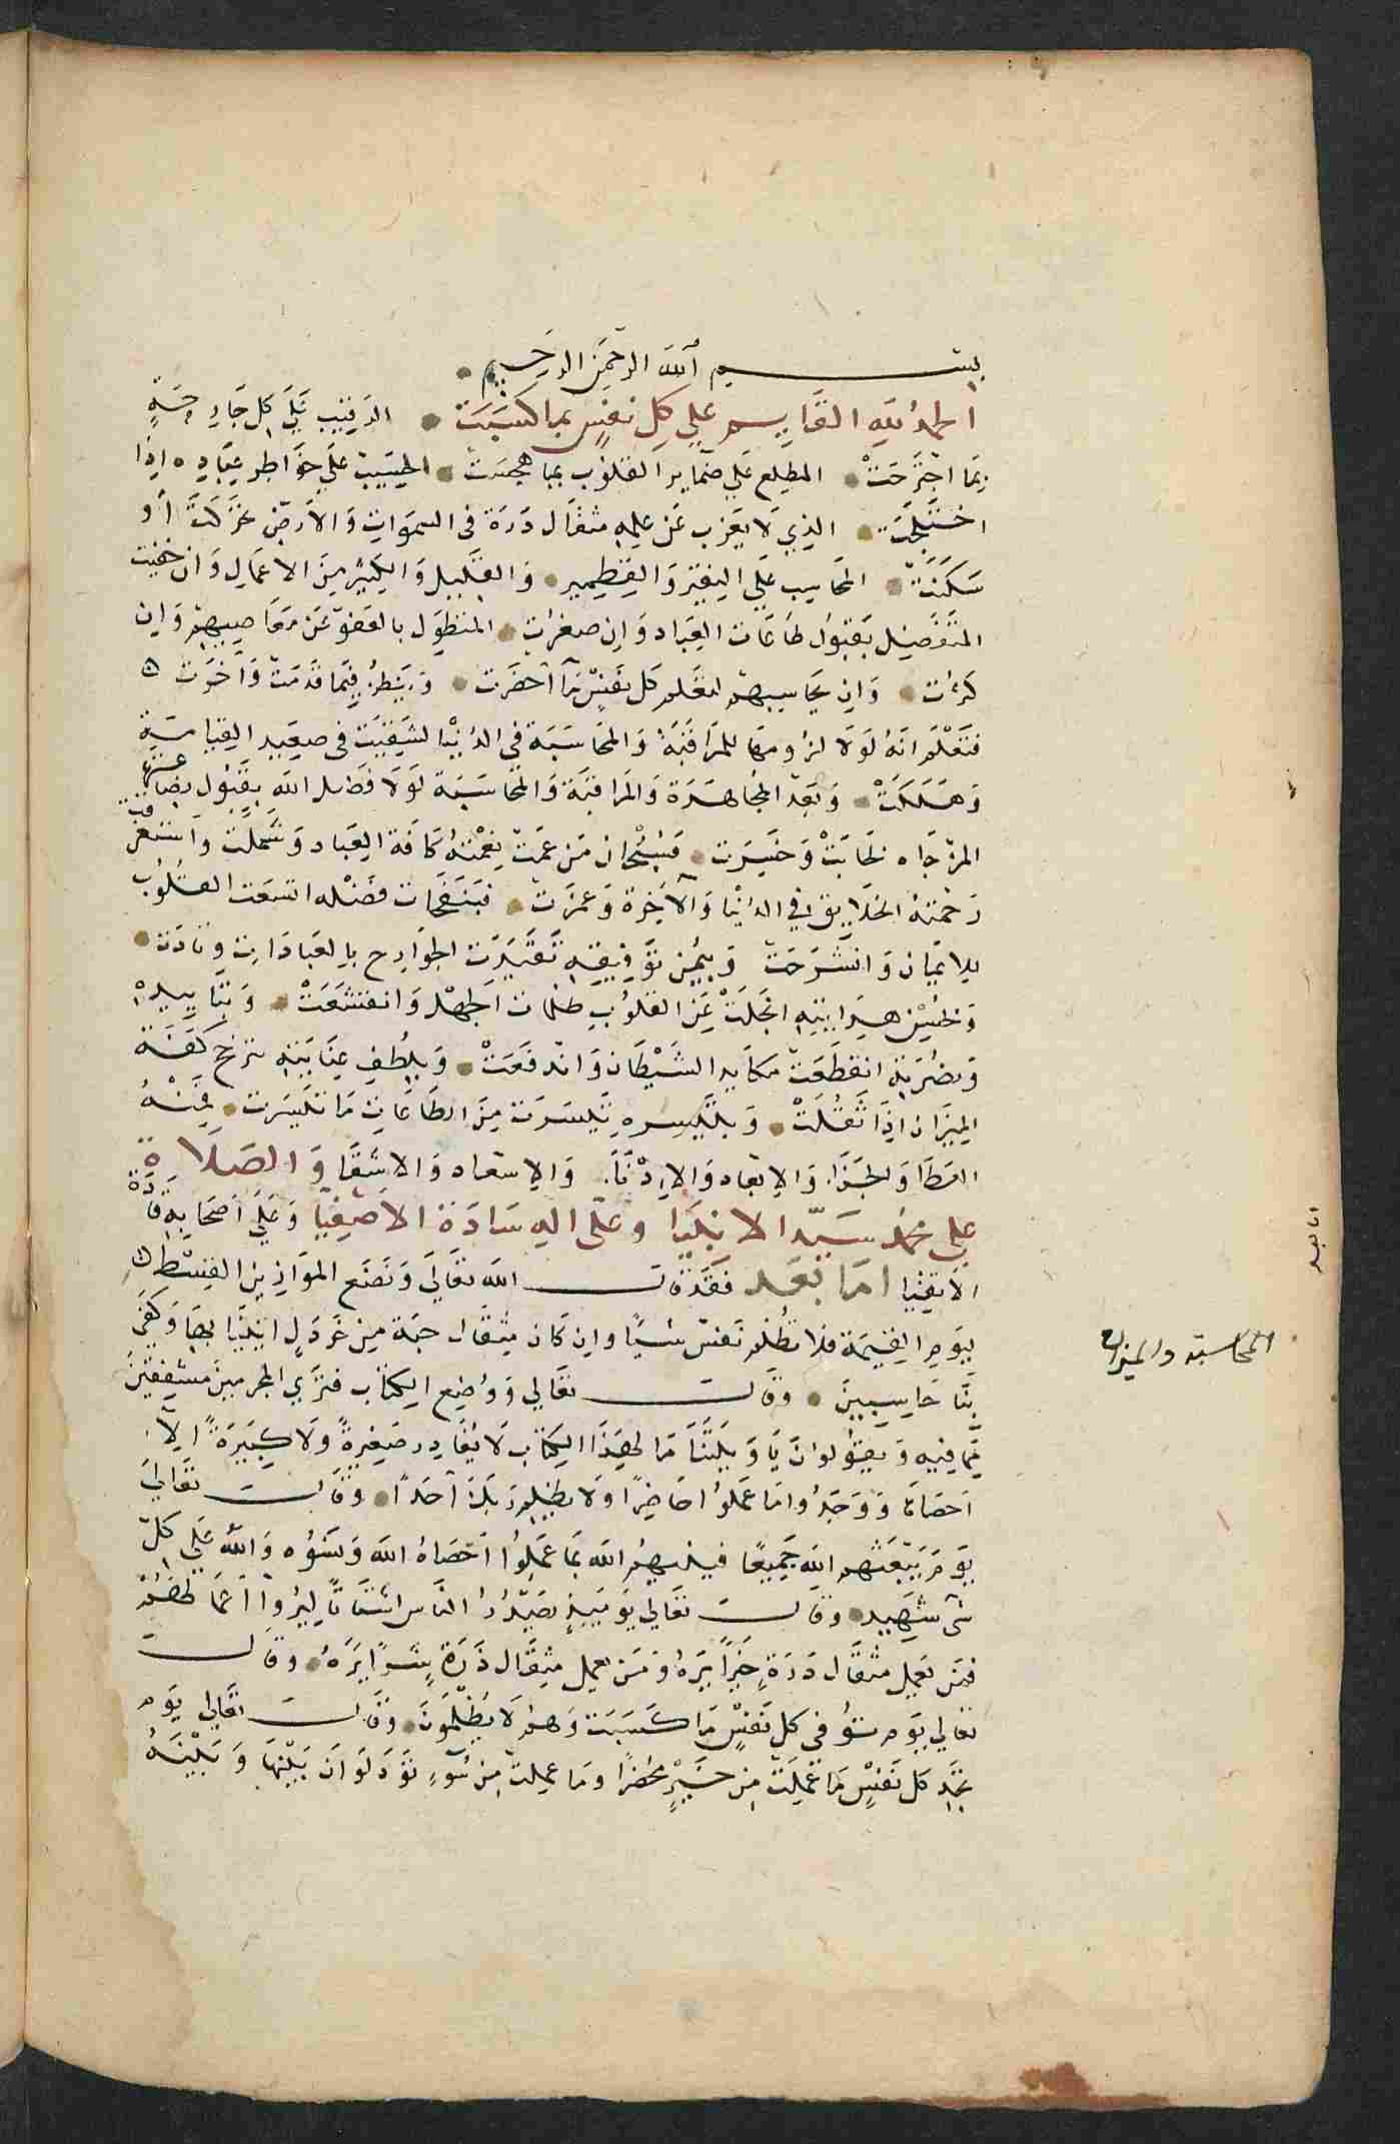 بسم الله الرحمن الرحيم
الحمد لله القايم علي كل نفس بما كسبت • الرقيب علي كل جارحة
بما اجترحت • المطلع علي ضماير القلوب بما هجست • الحسيب علي خواطر عباده اذا
اختلجت • الذي لا يعزب عن علمه مثقال ذرة في السموات والارض تحركت أو
سكنت • المحاسب علي النقير والقطمير • والقليل والكثير من الاعمال وان خفيت
المتفضل بقبول طاعات العباد وان صغرت • المتطول بالعفو عن معاصيهم وان
كثرت • وان يحاسبهم لتعلم كل نفس ما احضرت • وينظر فيما قدمت واخرت
فتعلم انه لولا لزومها للمراقبة والمحاسبة في الدنيا لشقيت في صعيد القيامة
وهلكت • وبعد المجاهدة والمراقبة والمحاسبة لولا فضل الله بقبول بضاعتها
المزجاه لخابت وخسرت • فسبحان من عمت نعمته كافة العباد وشملت واستغرقت
رحمته الخلايق في الدنيا والآخرة وعمرت • فبنفحات فضله اتسعت القلوب
للايمان وانشرحت وبيمن توفيقه تقيدت الجوارح بالعبادات وتادت •
وبحسن هدايته انجلت عن القلوب ظلمات الجهل وانقشعت • وبتاييده
وبنصرته انقطعت مكايد الشيطان واندفعت • وبلطف عنايته ترجح كفة
الميزان اذا ثقلت • وبتيسيره تيسرت من الطاعات ما تيسرت • فمنه
العطا والجزا. والابعاد والادنا. والاسعاد والاشقا والصلاة
علي محمد سيد الانبيا وعلي اله سادة الاصفيا وعلي اصحابه قادة
الاتقيا اما بعد فقد قال الله تعالي ونضع الموازين القسط
ليوم القيمة فلا تظلم نفس شيا وان كان مثقال حبة من خردل اتينا بها وكفي
المحاسبة والميزان
بنا حاسبين • وقال تعالي ووضع الكتاب فتري المجرمين مشفقين
مما فيه ويقولون يا ويلتنا مال هذا الكتاب لا يغادر صغيرة ولا كبيرة الا
احصاها ووجدوا ما عملوا حاضرا ولا يظلم ربك احدا • وقال تعالي
يوم يبعثهم الله جميعا فينبهم الله بما عملوا احصاه الله ونسوه والله علي كل
شى شهيد • وقال تعالي يوميذ يصدر الناس اشتاتا ليروا اعمالهم
فمن يعمل مثقال ذرة خيرا يره ومن يعمل مثقال ذرة شرا يره • وقال
تعالي يوم توفى كل نفس ما كسبت وهم لا يظلمون • وقال تعالي يوم
تجد كل نفس ما عملت من خير محضرا وما عملت من سوء تود لو ان بينها وبينه